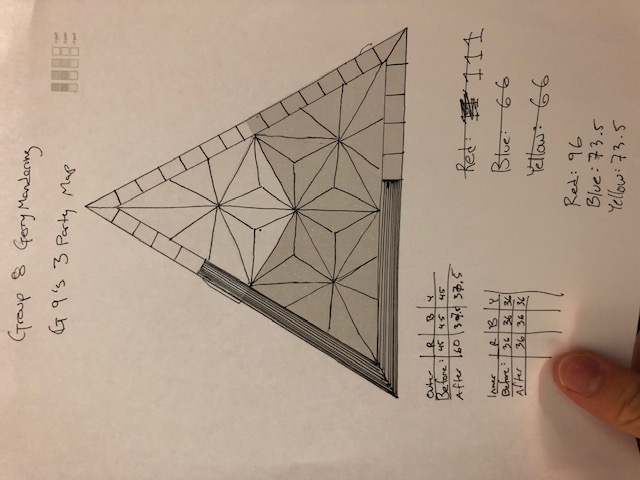 Group 8 Gerry Mandering
G 9's 3 Party Map
Outer R B Y
Before: 45 45 45
After 60 37.5 37.5
Inner R B Y
Before: 36 36 36
After 36 36 36
Red: 111
Blue: 66
Yellow: 66
Red: 96
Blue: 73.5
Yellow: 73.5